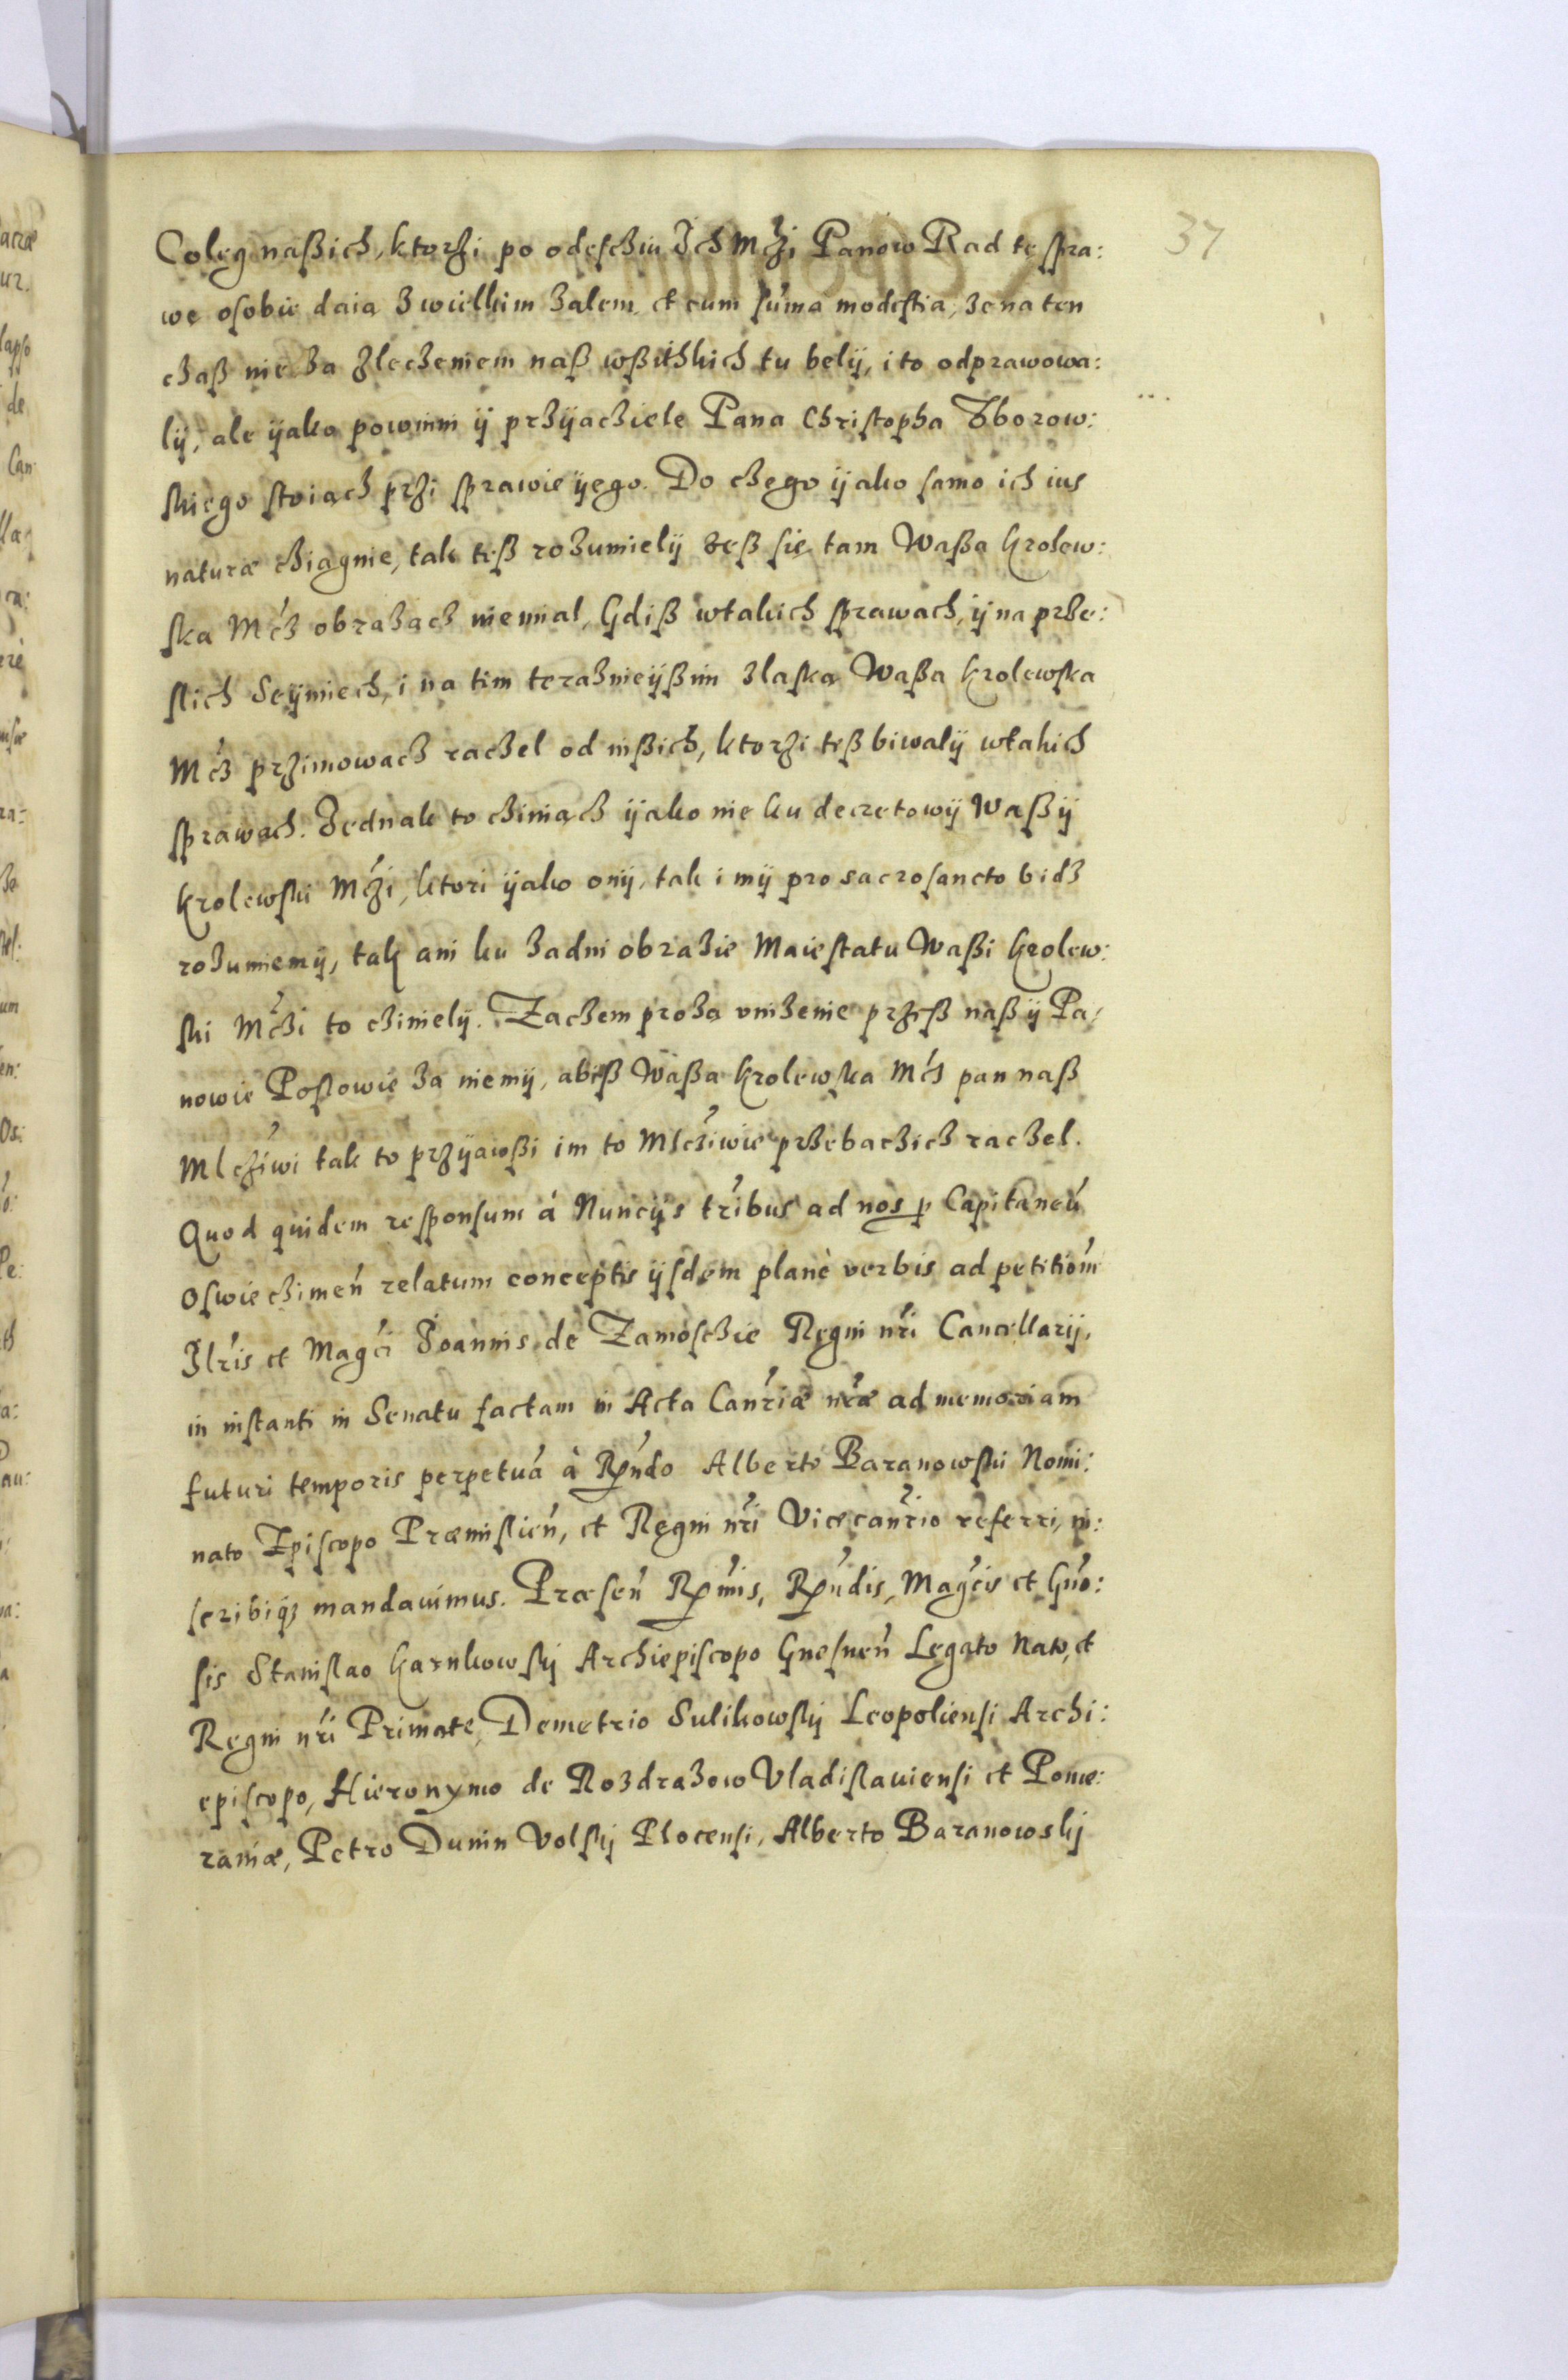 37
Coleg naßich, ktorzi po odescziu Ich Mczi Panow Rad te spra:
we osobie daia z wielkim zalem, et cum sum̃a modestia, ze na ten
czaß nie za zleczeniem naß wßithkich tu belÿ, i to odprawowa:
lÿ, ale ÿako powinni ÿ przÿacziele Pana Christopha Zborow:
skiego stoiacz przi sprawie ÿego. Do czego ÿako samo ich ius
naturæ cziagnie, tak teß rozumielÿ zeß się tam Waßa Krolew:
ska Mcz obrazacz niemial, Gdiß wtakich sprawach, ÿ na prze:
slich Seÿmiech, i na tim teraznieÿßim zlaska Waßa Krolewska
Mcz przimowacz raczel od inßich, ktorzi teß biwalÿ wtakich
sprawach. Jednak to cziniacz ÿako nie ku decretowÿ Waßÿ
Krolewski Mczi, ktori ÿako onÿ, tak i mÿ pro sacrosancto bidz
rozumiemÿ, tak ani ku zadni obrazie Maiestatu Waßi Krolew:
ski Mczi to czinielÿ. Zaczem proza unizenie przeß naß ÿ Pa:
nowie Poslowie za niemÿ, abiß Waßa Krolewska Mcz pan naß
Mlcziwi tak to przÿawßi im to Mlcziwie przebaczicz raczel.
Quod quidem responsum à Nuncÿs tribus ad nos p Capitaneũ
Oswiecimeñ relatum conceptis ÿsdem planè verbis ad petitioñm
Illris et Magci Joannis de Zamosczie Regni nri Cancellarij,
in instanti in Senatu factam in Acta Canriæ nræ ad memoriam
futuri temporis perpetuã à Rndo Alberto Baranowski Nomi:
nato Episcopo Præmislień, et Regni nri Vicecanrio referri, in:
scribiq; mandavimus. Præseñ Rmis, Rndis, Magcis et Gño:
sis Stanislao Karnkowskÿ Archiepiscopo Gnesneñ Legato Nato, et
Regni nri Primate, Demetrio Sulikowskÿ Leopoliensi Archi:
episcopo, Hieronymo de Rozdrazow Vladislaviensi et Pome:
raniæ, Petro Dunin Volskÿ Plocensi, Alberto Baranowskÿ